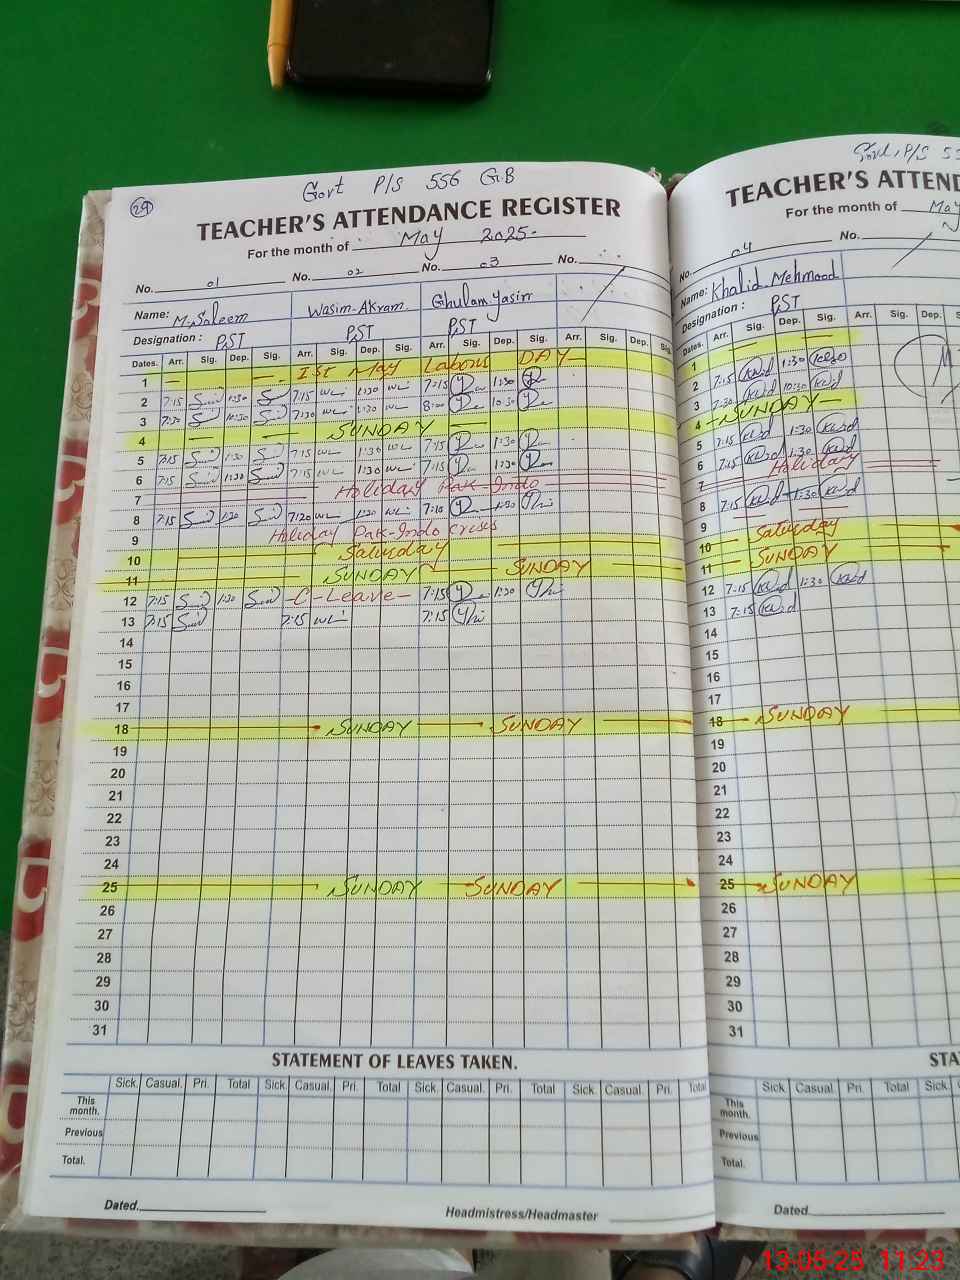 Govt P/S 556 GB
29
TEACHER'S ATTENDANCE REGISTER
For the month of May 2025
No. 01 No. 02 No. 03 No.
Name: M. Saleem Wasim Akram Ghulam Yasin
Designation: PST PST PST
Dates. Arr. Sig. Dep. Sig. Arr. Sig. Dep. Sig. Arr. Sig. Dep. Sig. Arr. Sig. Dep. Sig.
1 Ist May Labour DAY
2 7:15 1:30 7:15 1:30 7:15 1:30
3 7:30 10:30 7:30 1:30 8:00 10:30
4 SUNDAY
5 7:15 1:30 7:15 1:30 7:15 1:30
6 7:15 1:30 7:15 1:30 7:15 1:30
7 Holiday Pak-Indo
8 7:15 1:30 7:20 1:30 7:10 1:30
9 Holiday Pak-Indo crises
10 Saturday
11 SUNDAY SUNDAY
12 7:15 1:30 -C-Leave- 7:15 1:30
13 7:15 7:15 7:15
14
15
16
17
18 SUNDAY SUNDAY
19
20
21
22
23
24
25 SUNDAY SUNDAY
26
27
28
29
30
31
STATEMENT OF LEAVES TAKEN.
Sick. Casual. Pri. Total Sick. Casual. Pri. Total Sick. Casual. Pri. Total Sick. Casual. Pri. Total
This month.
Previous
Total.
Dated. Headmistress/Headmaster
Govt, P/S 55
TEACHER'S ATTEND
For the month of May
No. 04 No.
Name: Khalid Mehmood
Designation: PST
Dates. Arr. Sig. Dep. Sig. Arr. Sig. Dep. Sig.
1
2 7:15 1:30
3 7:30 10:30
4 SUNDAY
5 7:15 1:30
6 7:15 1:30
7 Holiday
8 7:15 1:30
9
10 Saturday
11 SUNDAY
12 7:15 1:30
13 7:15
14
15
16
17
18 SUNDAY
19
20
21
22
23
24
25 SUNDAY
26
27
28
29
30
31
STA
Sick. Casual. Pri. Total Sick.
This month.
Previous
Total.
Dated.
13-05-25 11:23